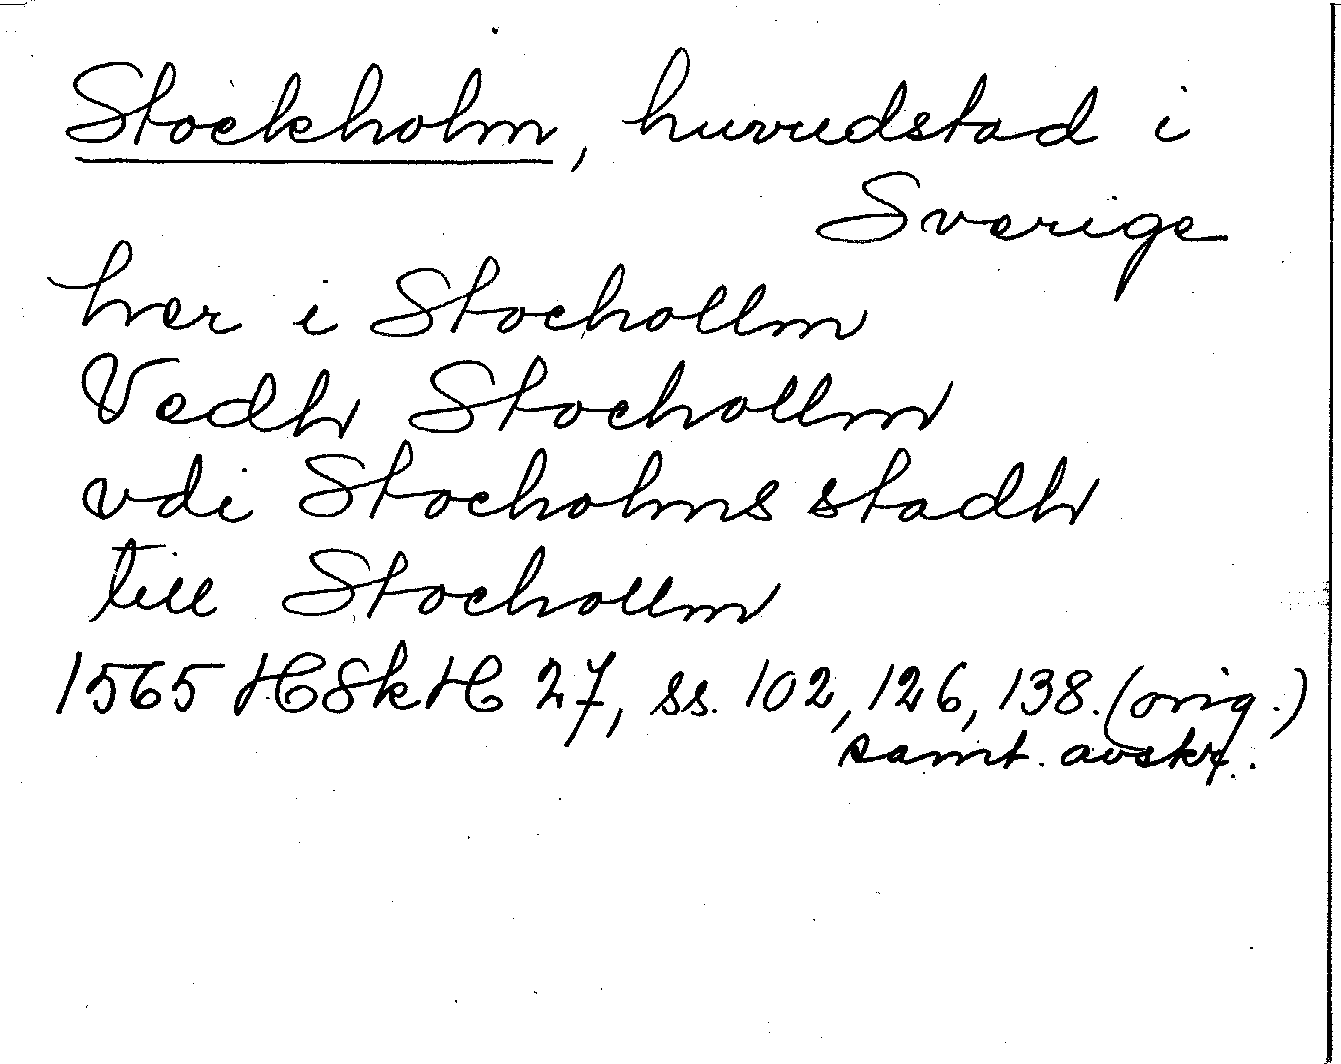 Stockholm, huvudstad i
Sverige
her i Stocholm
Vedh Stochollm
vdi Stocholms stadh
till Stochollm
1565 HSkH 27, ss. 102, 126, 138. (orig.)
samt. avskr.